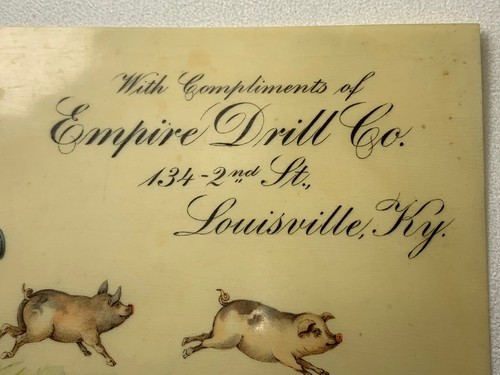 With Compliments of
Empire Drill Co.
134-2nd St.,
Louisville, Ky.